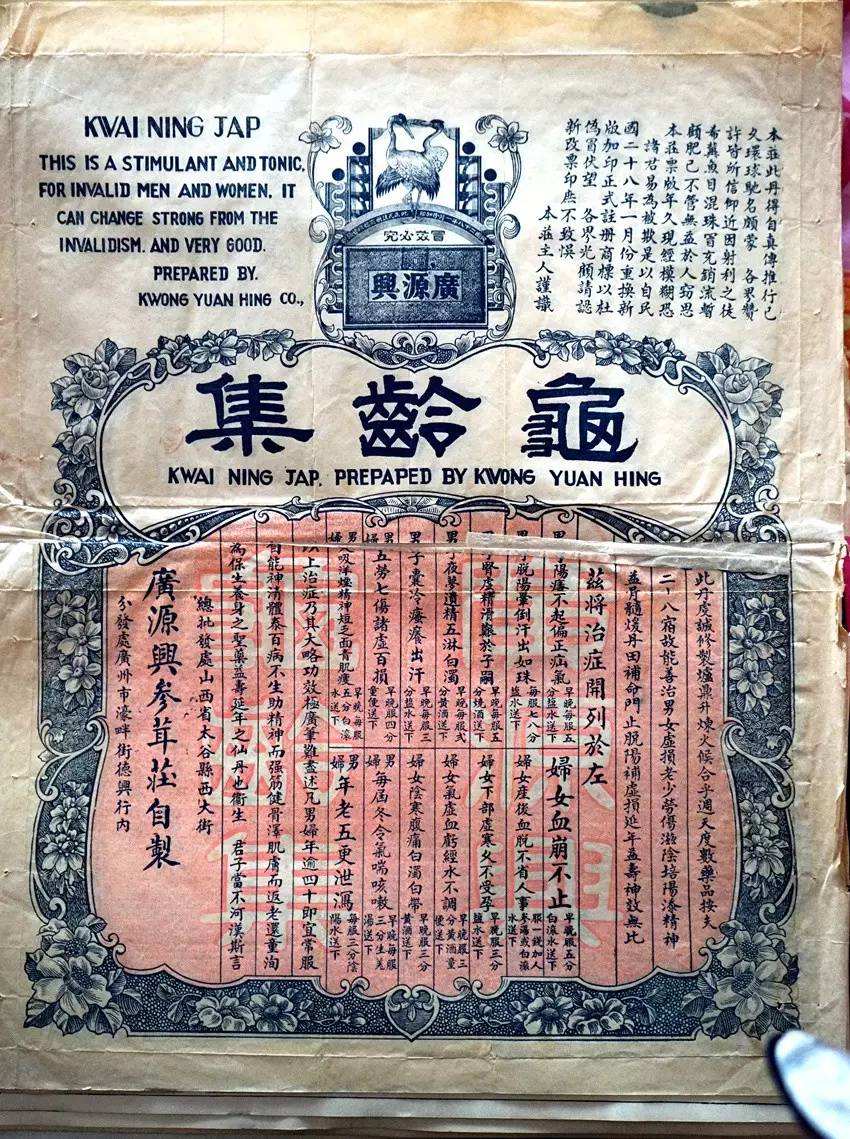 KWAI NING JAP
THIS IS A STIMULANT AND TONIC.
FOR INVALID MEN AND WOMEN. IT
CAN CHANGE STRONG FROM THE
INVALIDISM. AND VERY GOOD.
PREPARED BY.
KWONG YUAN HING CO.,
冒效必究
廣源興
本莊此丹得自真傳推行已
久環球馳名頗蒙 各界贊
許皆所信仰近因射利之徒
希冀魚目混珠冒充銷流暫
顧肥己不管無益於人竊思
本莊票版年久現經模糊恐
諸君易為被欺是以自民
國二十八年一月份重換新
版加印正式註册商標以杜
偽冒伏望 各界光顧請認
新改票印庶不致悞
本莊主人謹識
龜齡集
KWAI NING JAP. PREPAPED BY KWONG YUAN HING
此丹虔誠修製爐鼎升煉火候合乎週天度數藥品按夫
二十八宿故能善治男女虛損老少勞傷滋陰培陽添精神
益骨髓煖丹田補命門止脫陽補虛損延年益壽神效無比
茲將治症開列於左
陽痿不起偏正疝氣 早晚每服五分盐水送下
婦女血崩不止 早晚服五分白滾水送下
脫陽暈倒汗出如珠 每服七八分盐水送下
婦女產後血脫不省人事 服一錢加人參湯或白滾水送下
腎虛精滑艱於子嗣 早晚每服五分燒酒送下
婦女下部虛寒久不受孕 早晚服三分盐水送下
男子夜夢遺精五淋白濁 早晚每服弍分黃酒送下
婦女氣虛血虧經水不調 早晚服三分黃酒童便送下
男子囊冷瘻癢出汗 早晚每服三分盐水送下
婦女陰寒腹痛白濁白帶 早晚服三分黃酒送下
男婦五勞七傷諸虛百損 早晚服四分童便送下
男婦每屆冬令氣喘咳嗽 早晚每服三分生羌湯送下
男婦吸洋煙精神短乏面青肌瘦 早晚每服五分白滾水送下
男婦年老五更泄瀉 早晚每服三分陰陽水送下
以上治症乃其大略功效極廣筆難盡述凡男婦年逾四十即宜常服
自能神清體泰百病不生助精神而强筋健骨澤肌膚而返老還童洵
為保生養身之聖藥益壽延年之仙丹也衛生 君子當不河漢斯言
總批發處山西省太谷縣西大街
廣源興參茸莊自製
分發處廣州市濠畔街德興行內